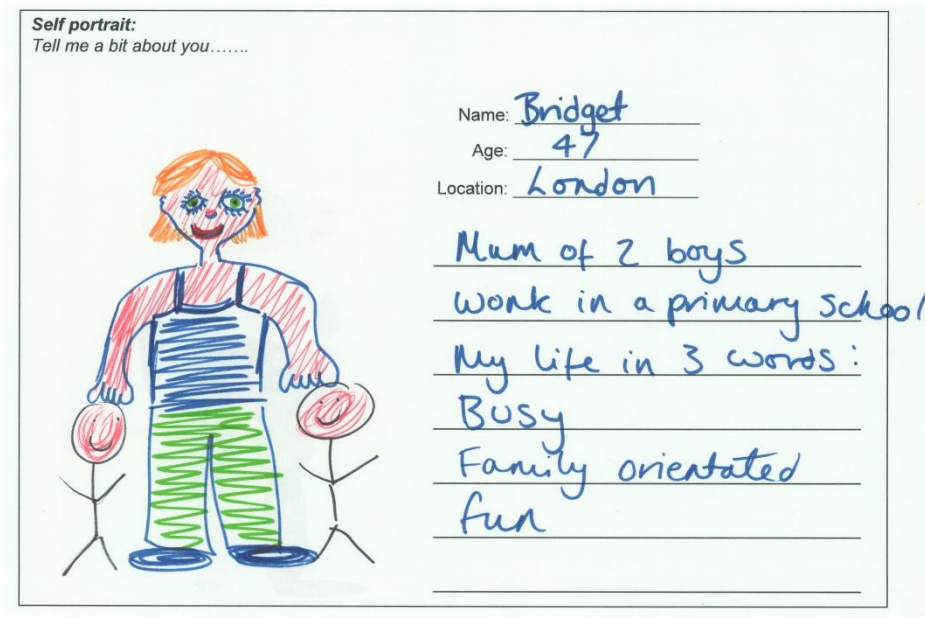 Self portrait:
Tell me a bit about you.......
Name: Bridget
Age: 47
Location: London
Mum of 2 boys
work in a primary school
My life in 3 words:
Busy
Family orientated
fun